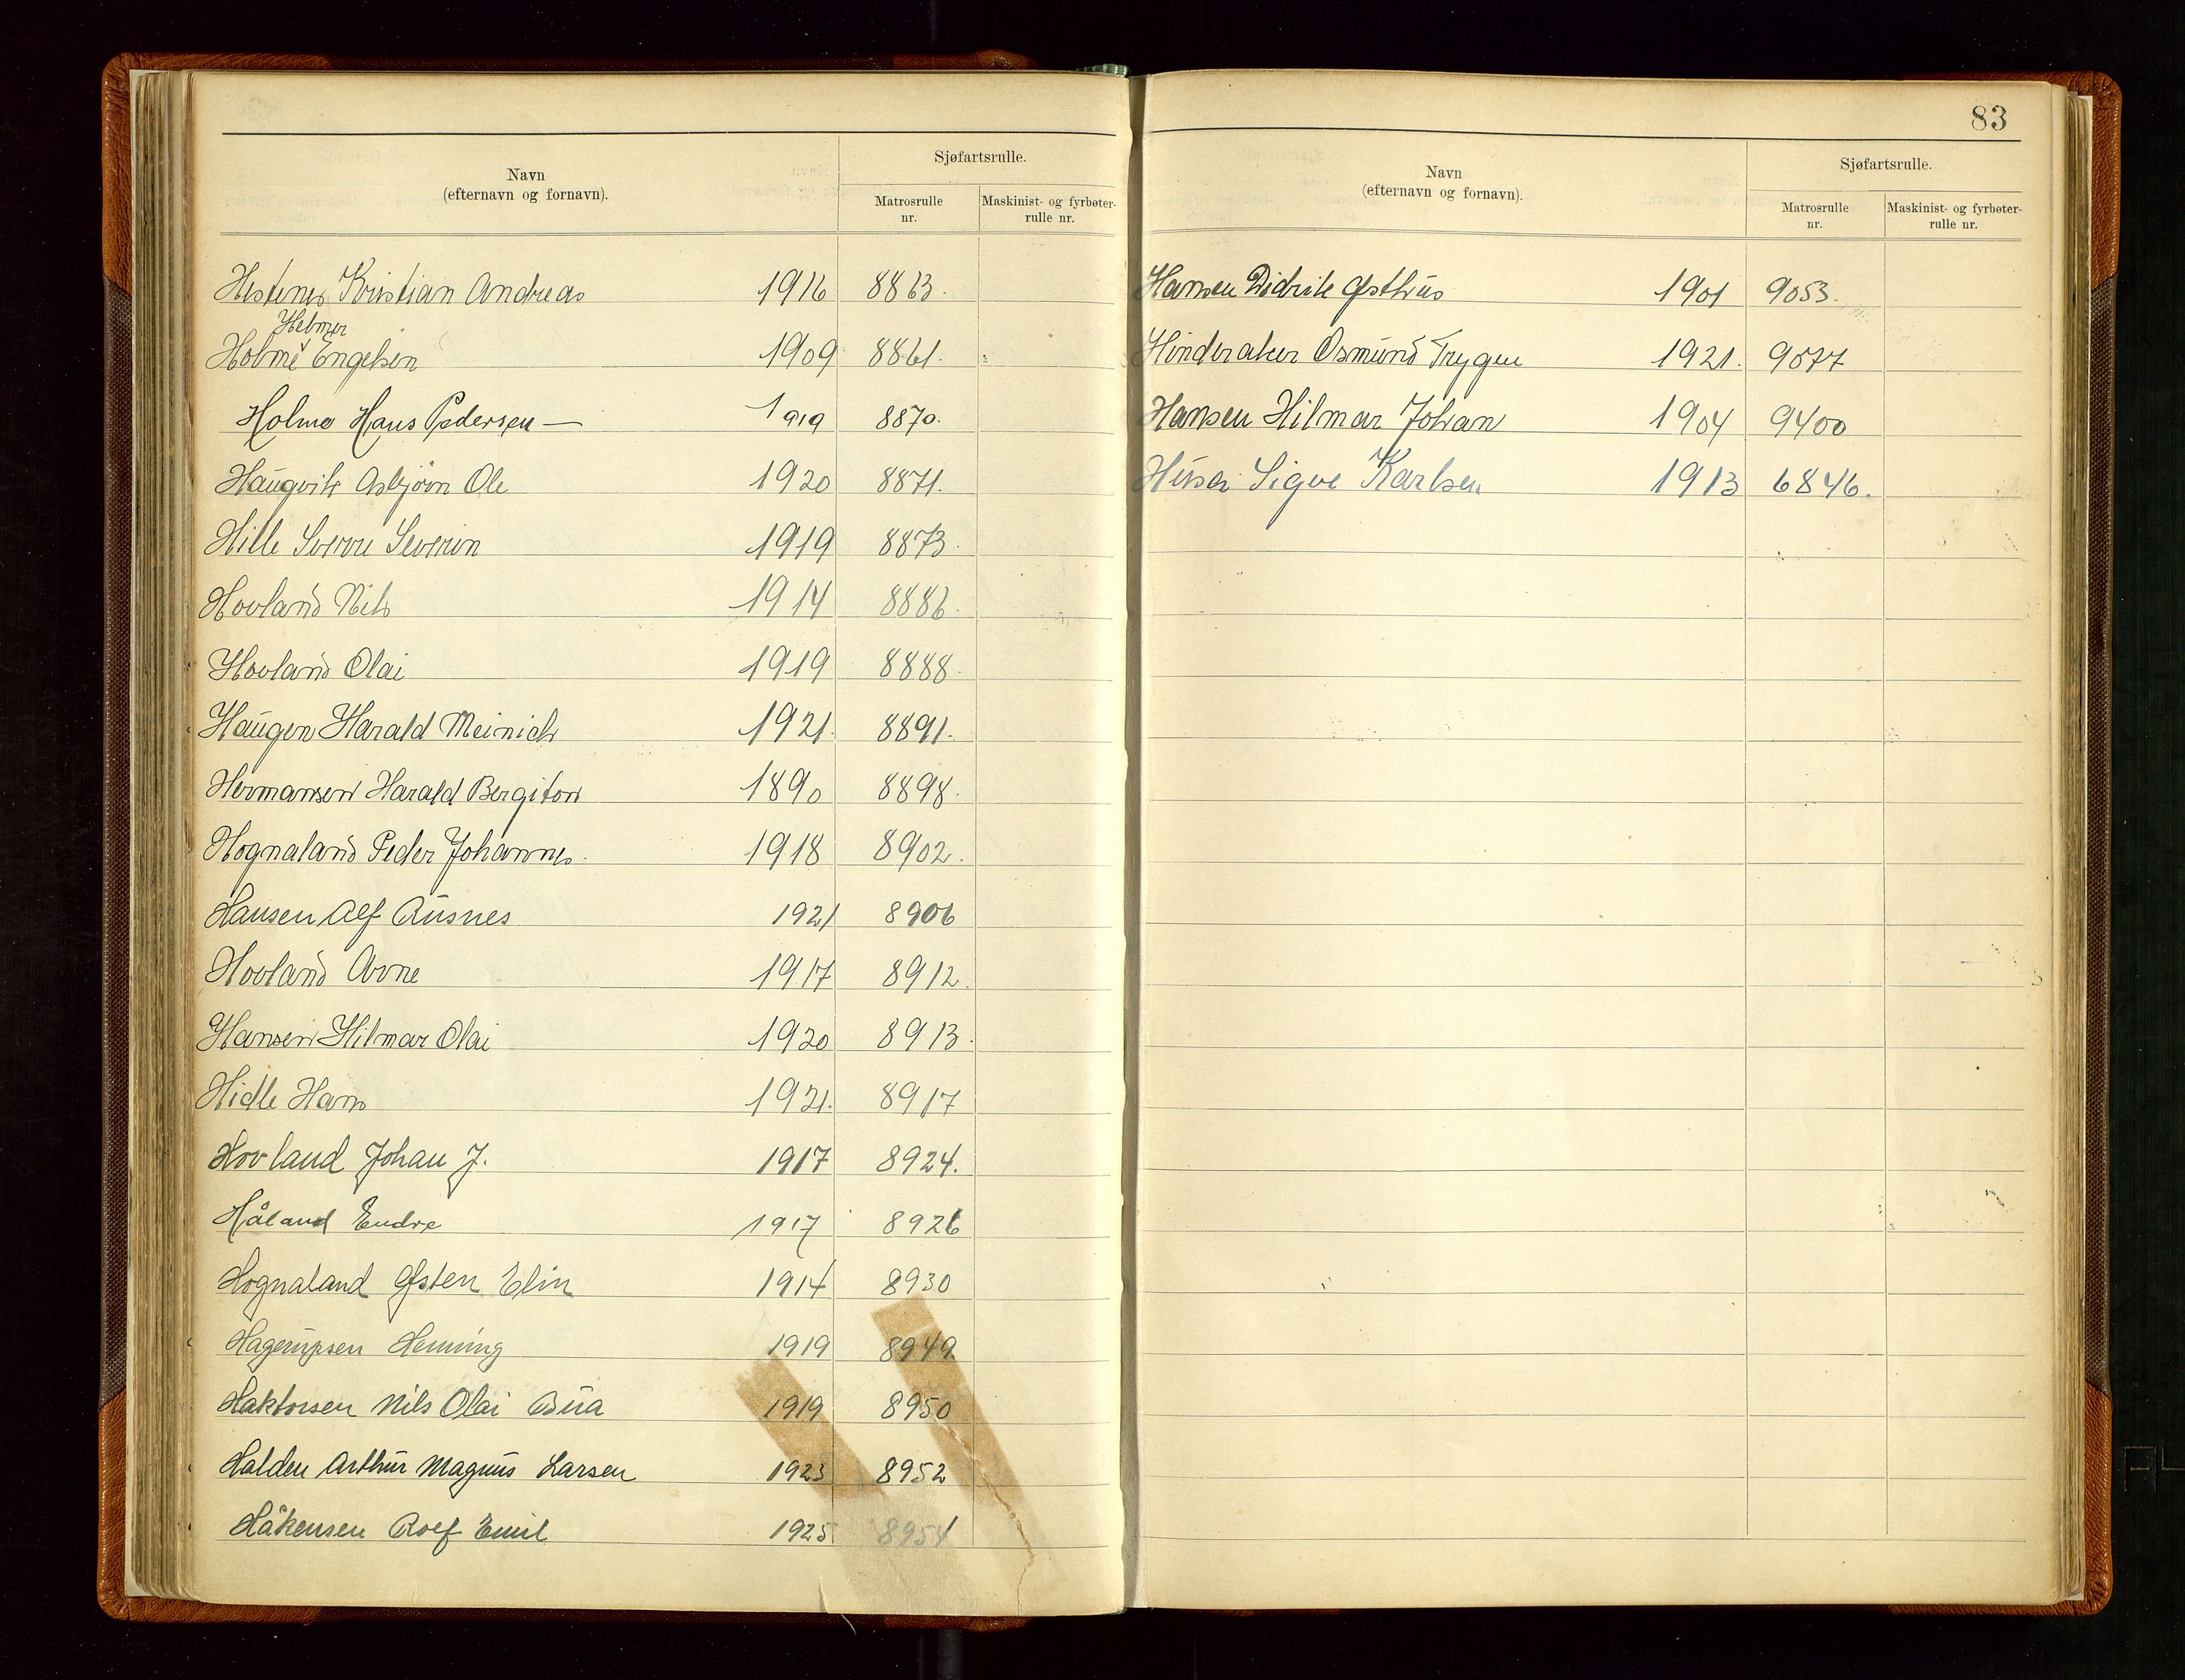 Navn
(efternavn og fornavn).
Sjøfartsrulle.
Matrosrulle nr.
Maskinist- og fyrbøter-rulle nr.
Hestenes Kristian Andreas 1916 8863.
Helmer
Holme Engelsen 1909 8861.
Holmo Hans Pedersen — 1919 8870.
Haugvik Asbjörn Ole 1920 8871.
Hille Sverre Severin 1919 8873.
Hovland Nils 1914 8886.
Hovland Olai 1919 8888.
Haugen Harald Meinich 1921. 8891.
Hermansen Harald Bergiton 1890 8898.
Hognaland Peder Johannes. 1918 8902.
Hansen Alf Rusnes 1921 8906
Hovland Arne 1917 8912.
Hansen Hilmar Olai 1920 8913.
Hidle Hans 1921. 8917
Hovland Johan J. 1917 8924.
Håland Endre 1917 8926
Hognaland Østen Elin 1914 8930
Hagerupsen Henning 1919 8949.
Haktorsen Nils Olai Bua 1919 8950
Halden Arthur Magnus Larsen 1923 8952
Håkensen Rolf Emil 1925 8954
83
Navn
(efternavn og fornavn).
Sjøfartsrulle.
Matrosrulle nr.
Maskinist- og fyrbøter-rulle nr.
Hansen Didrik Østhus 1901 9053.
Hinderaker Osmund Trygve 1921. 9077
Hansen Hilmar Johan 1904 9400
Husa Sigve Karlsen 1913 6846.